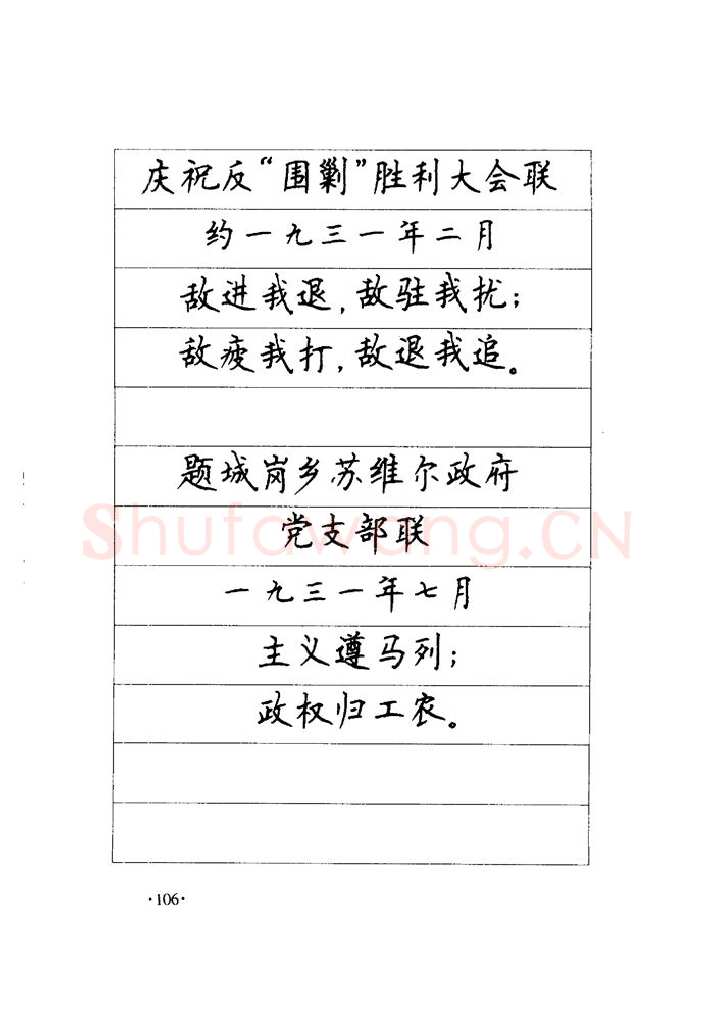 庆祝反“围剿”胜利大会联
约一九三一年二月
敌进我退，敌驻我扰；
敌疲我打，敌退我追。
题城岗乡苏维尔政府
党支部联
Shufawang.CN
一九三一年七月
主义遵马列；
政权归工农。
·106·